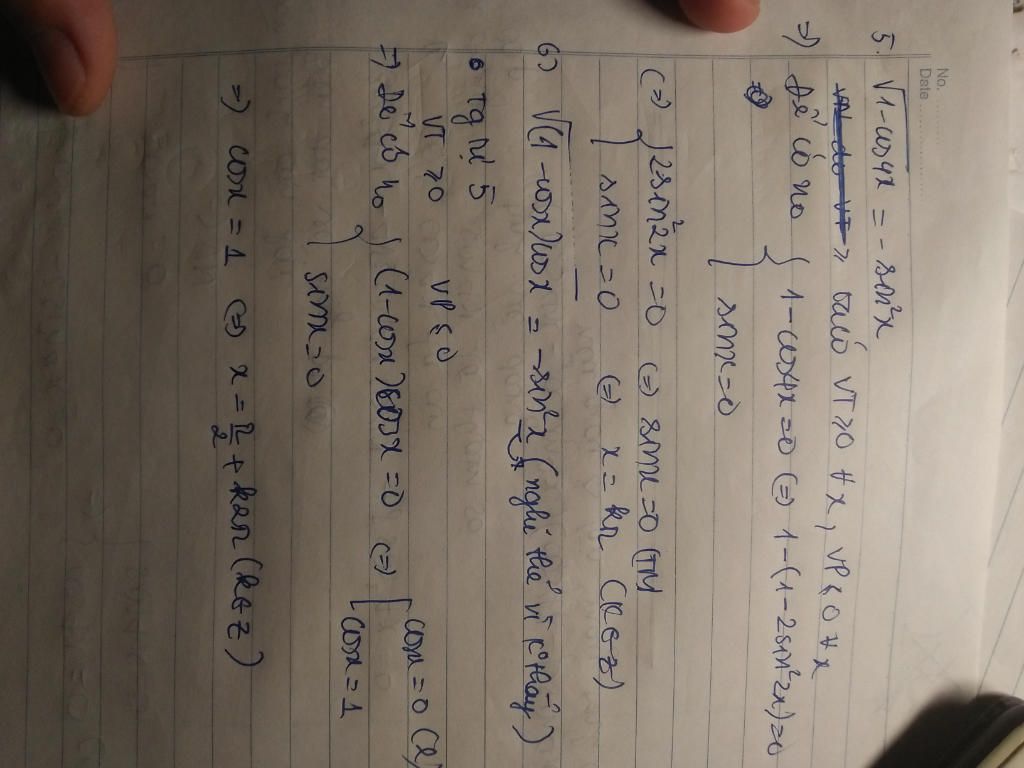 No.
Date
5. √1-cos4x = -sin²x
ta có VT ≥ 0 ∀x, VP ≤ 0 ∀x
=> Để có n₀ { 1-cos4x=0 (=) 1-(1-2sin²2x)=0
sinx=0
(=) { 2sin²2x=0 (=) sinx=0 (TM
sinx=0 (=) x=kπ (k∈Z)
6) √(1-cosx)cosx = -sin²x (nghi thế vì k° thấy)
• Tg tự 5
VT ≥ 0 VP ≤ 0
=> Để có n₀ { (1-cosx)cosx=0 (=) [ cosx=0 (l)
sinx=0 cosx=1
=) cosx = 1 (=) x = π/2 + k2π (k∈Z)